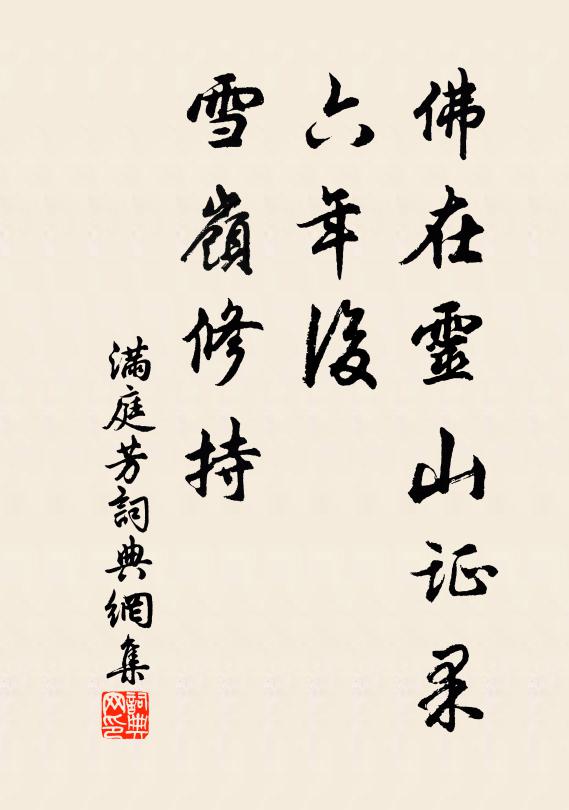 佛在靈山证果
六年後
雪嶺修持
滿庭芳詞典網集
詞典网印